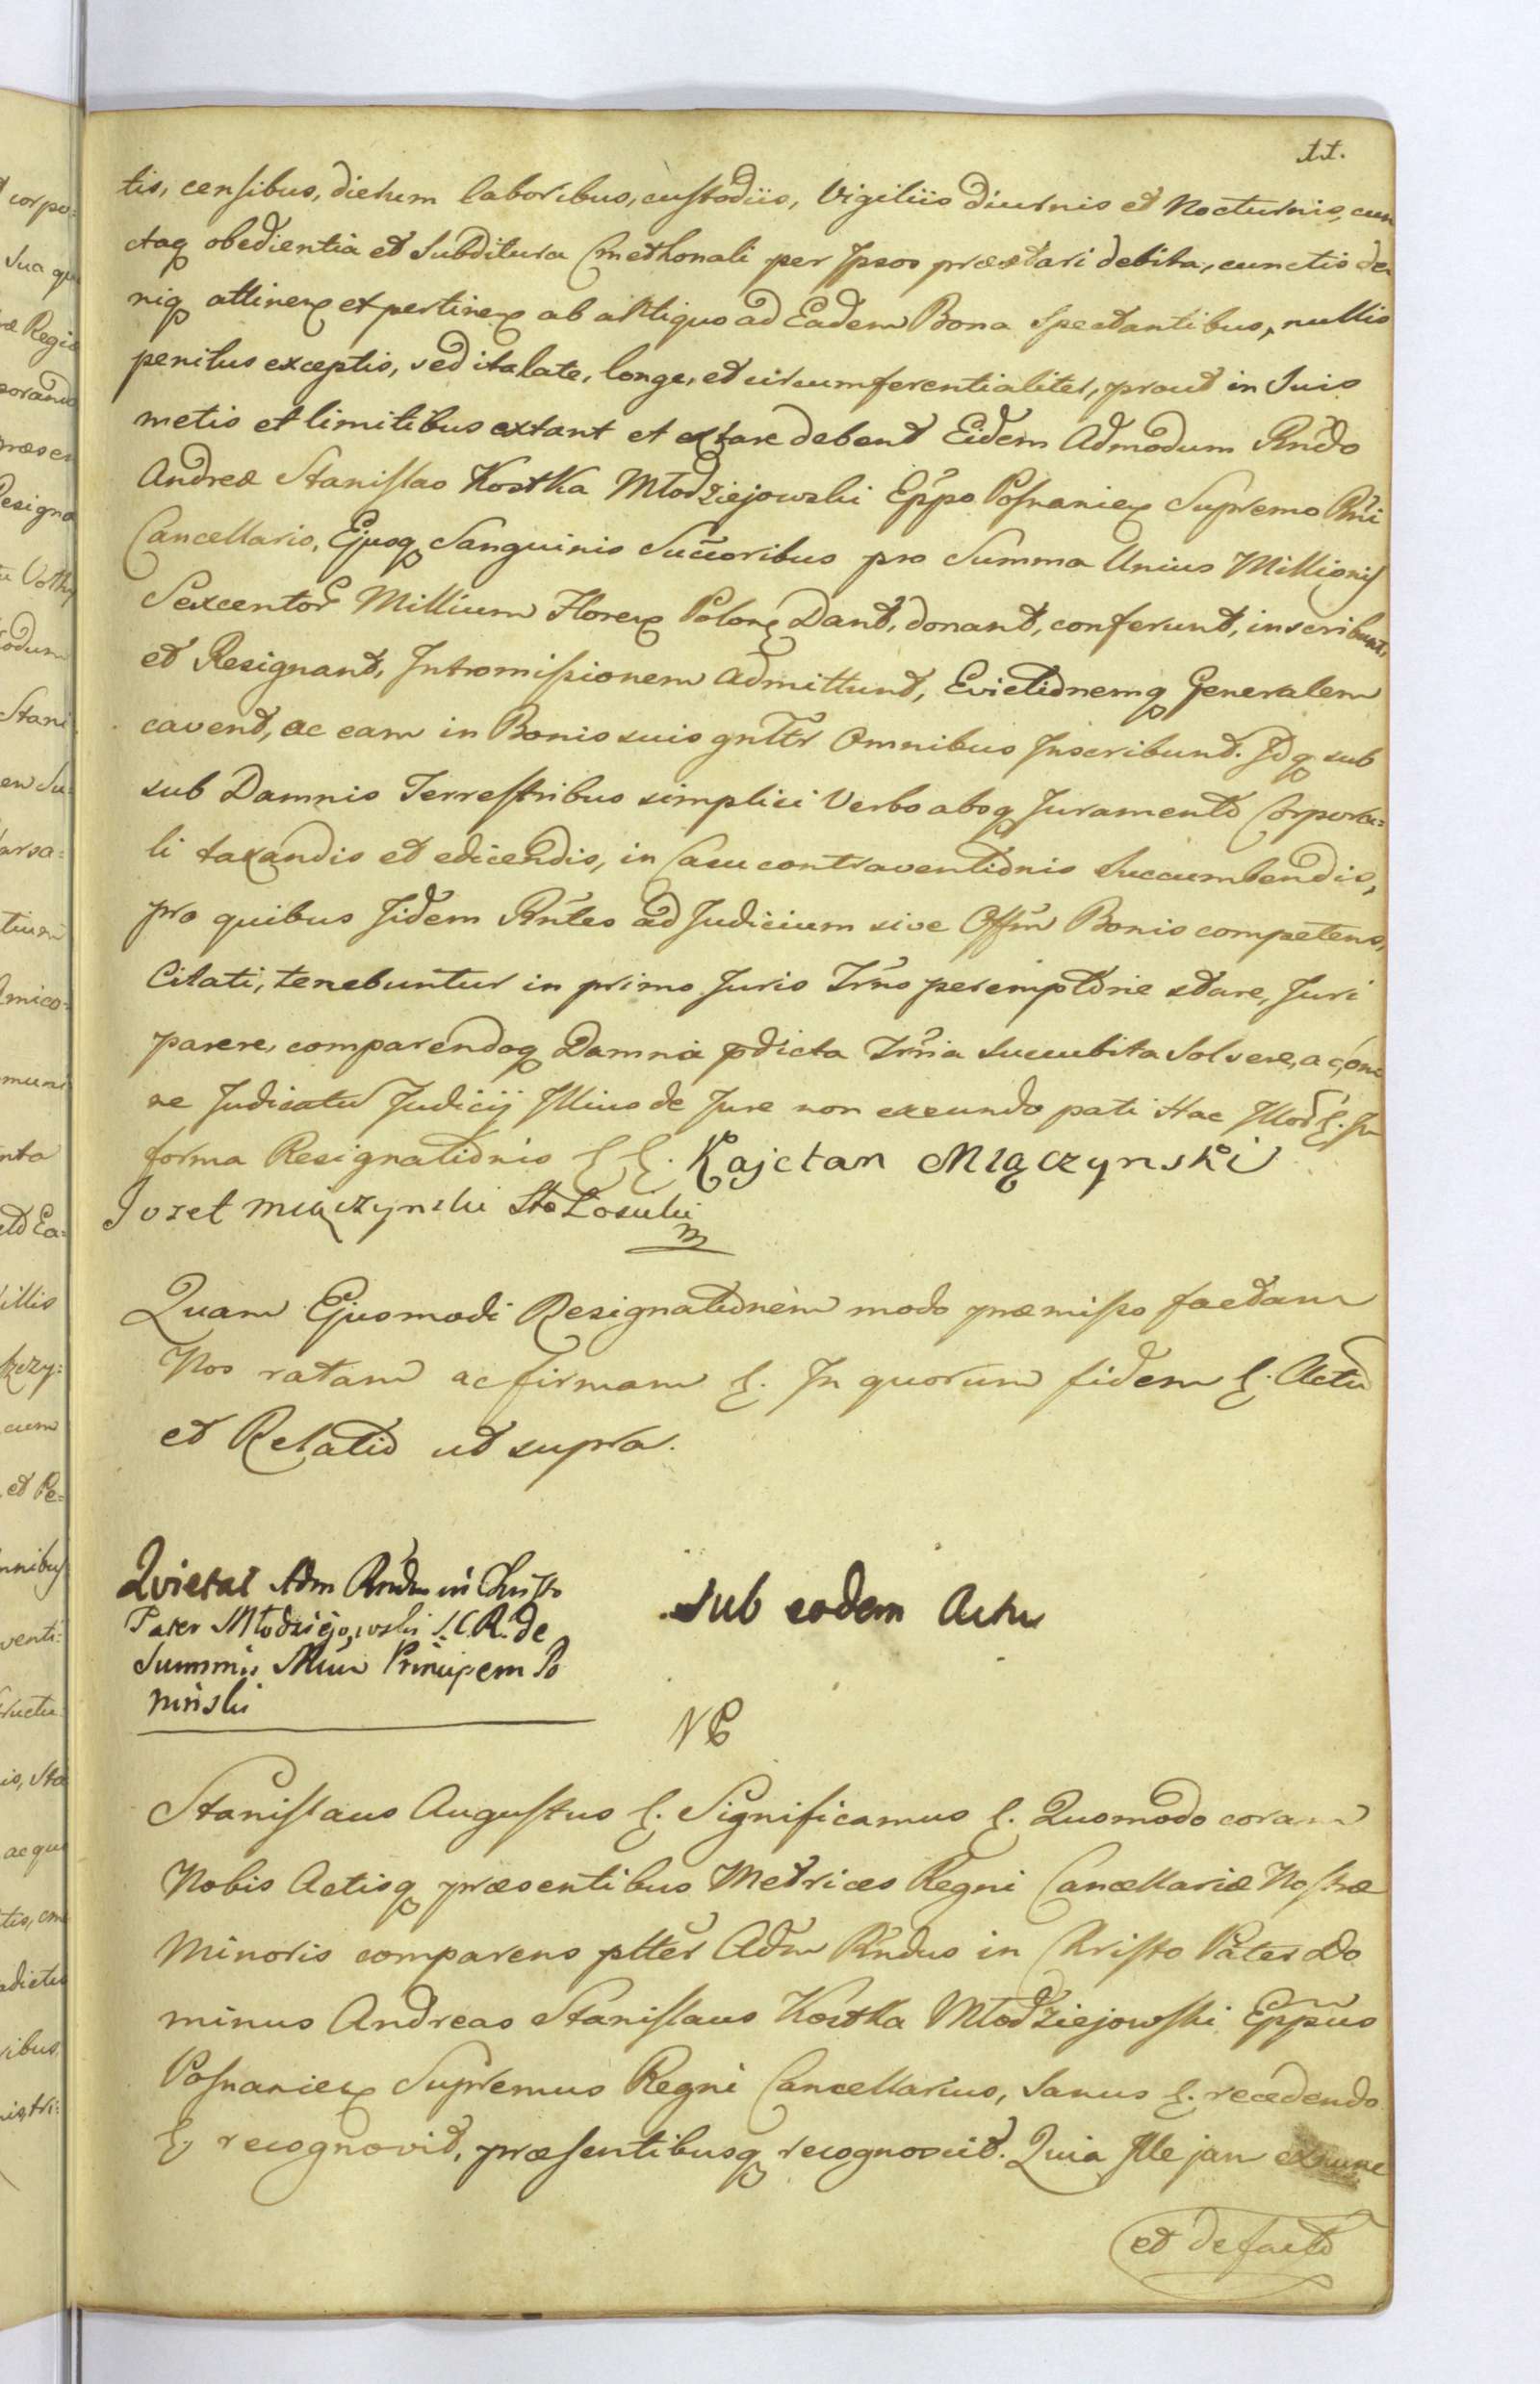 11.
tis, censibus, dierum laboribus, custodiis, Vigiliis diurnis et Nocturnis, cun
ctaq obedientia et Subditura Cmethonali per Ipsos præstari debita, cunctis de
niq attinen et pertinen ab antiquo ad Eadem Bona spectantibus, nullis
penitus exceptis, sed ita late, longe, et circumferentialiter, prout in Suis
metis et limitibus extant et extare debent Eidem Admodum Rndo
Andreæ Stanislao Kostka Młodziejowski Eppo Posnanien Supremo Rni
Cancellario, Ejusq Sanguinis Succoribus pro Summa Unius Millionis
Sexcentor Millium Floren Polon Dant, donant, conferunt, inscribunt,
et Resignant, Intromissionem admittunt, Evictionemq Generalem
cavent, ac eam in Bonis suis gnltr Omnibus Inscribunt. Idq sub
sub Damnis Terrestribus simplici Verbo absq Juramento Corpora=
li taxandis et edicendis, in Casu contraventionis succumbendis,
pro quibus Iidem Rntes ad Judicium sive Offm Bonis competens,
Citati, tenebuntur in primo Juris Trno peremptorie stare, Juri
parere, comparendoq Damna pdicta Trnia succubita solvere, ac om
ne Judicatu Judicij Illius de Jure non exeundo pati Hac Mod
forma Resignationis Kajetan Miączynski
Jozef Miączynski
Quam Ejusmodi Resignationem modo præmisso factam
Nos ratam ac firmam &. In quorum fidem &. Actu
et Relatio ut supra.
Quietat Adm Rndus in Christo
Pater Młodziejowski S.C.R. de
Summis Principem Po
niński
Sub eodem Actu
Stanislaus Augustus &. Significamus &. Quomodo coram
Nobis Actisq præsentibus Metrices Regni Cancellariæ Nostræ
Minoris comparens pltter Adm Rndus in Christo Pater Do
minus Andreas Stanislaus Kostka Młodziejowski Eppus
Posnanien Supremus Regni Cancellarius, sanus &. recedendo
& recognovit, præsentibusq recognoscit. Quia Ille jam ex nunc
et de facto